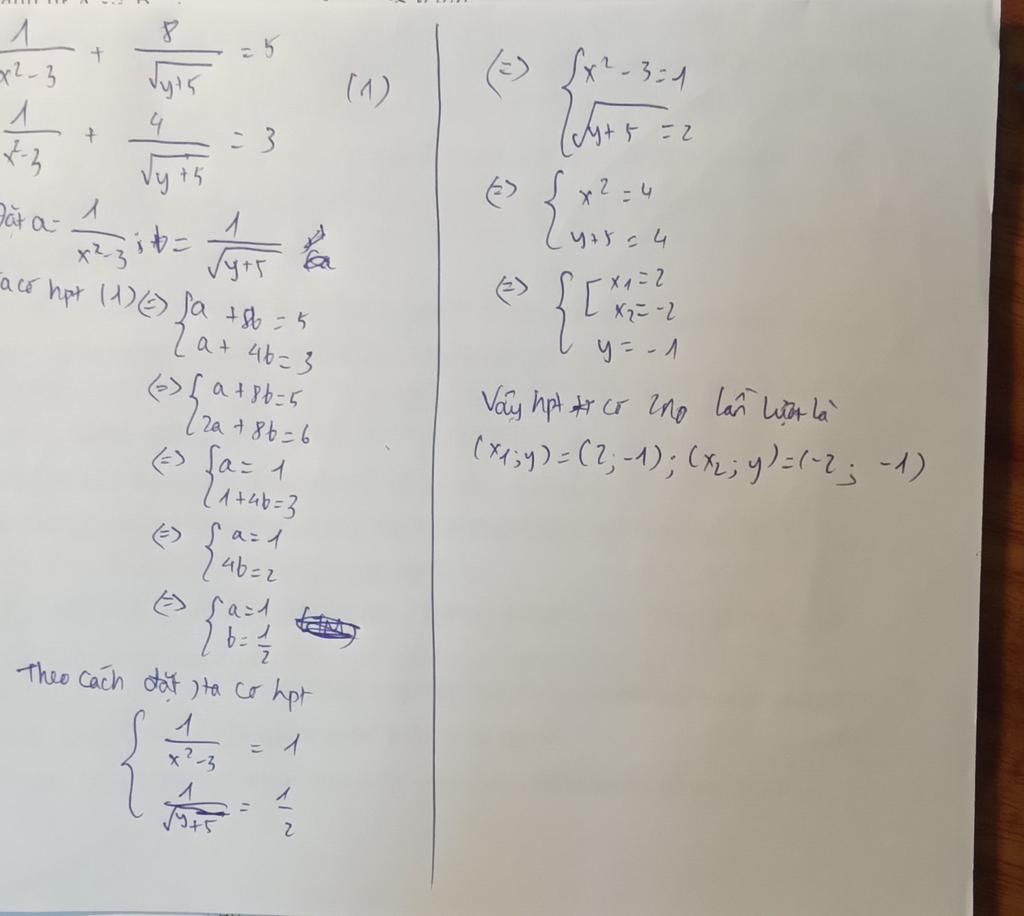 1/(x²-3) + 8/√(y+5) = 5
(1)
1/(x²-3) + 4/√(y+5) = 3
Đặt a = 1/(x²-3) ; b = 1/√(y+5)
Ta có hpt (1) (=) { a + 8b = 5
a + 4b = 3
(=) { a + 8b = 5
2a + 8b = 6
(=) { a = 1
1 + 4b = 3
(=) { a = 1
4b = 2
(=) { a = 1
b = 1/2
Theo cách đặt, ta có hpt
{ 1/(x²-3) = 1
1/√(y+5) = 1/2
(=) { x² - 3 = 1
√(y+5) = 2
(=) { x² = 4
y + 5 = 4
(=) { [ x₁ = 2
x₂ = -2
y = -1
Vậy hpt có 2no lần lượt là
(x₁; y) = (2; -1); (x₂; y) = (-2; -1)